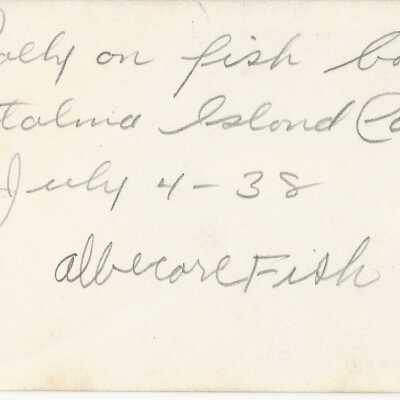 olly on fish bo
talina Island Ca
July 4-38
albecore Fish